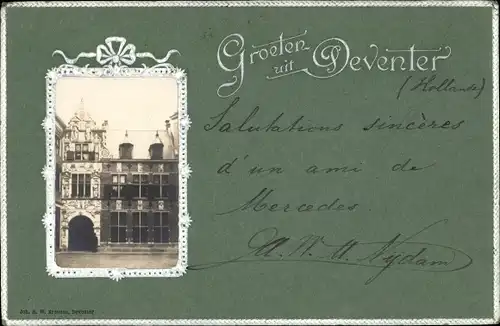 Groeten
uit Deventer
(Hollande)
Salutations sincères
d'un ami de
Mercedes.
A. W. H. Nydam